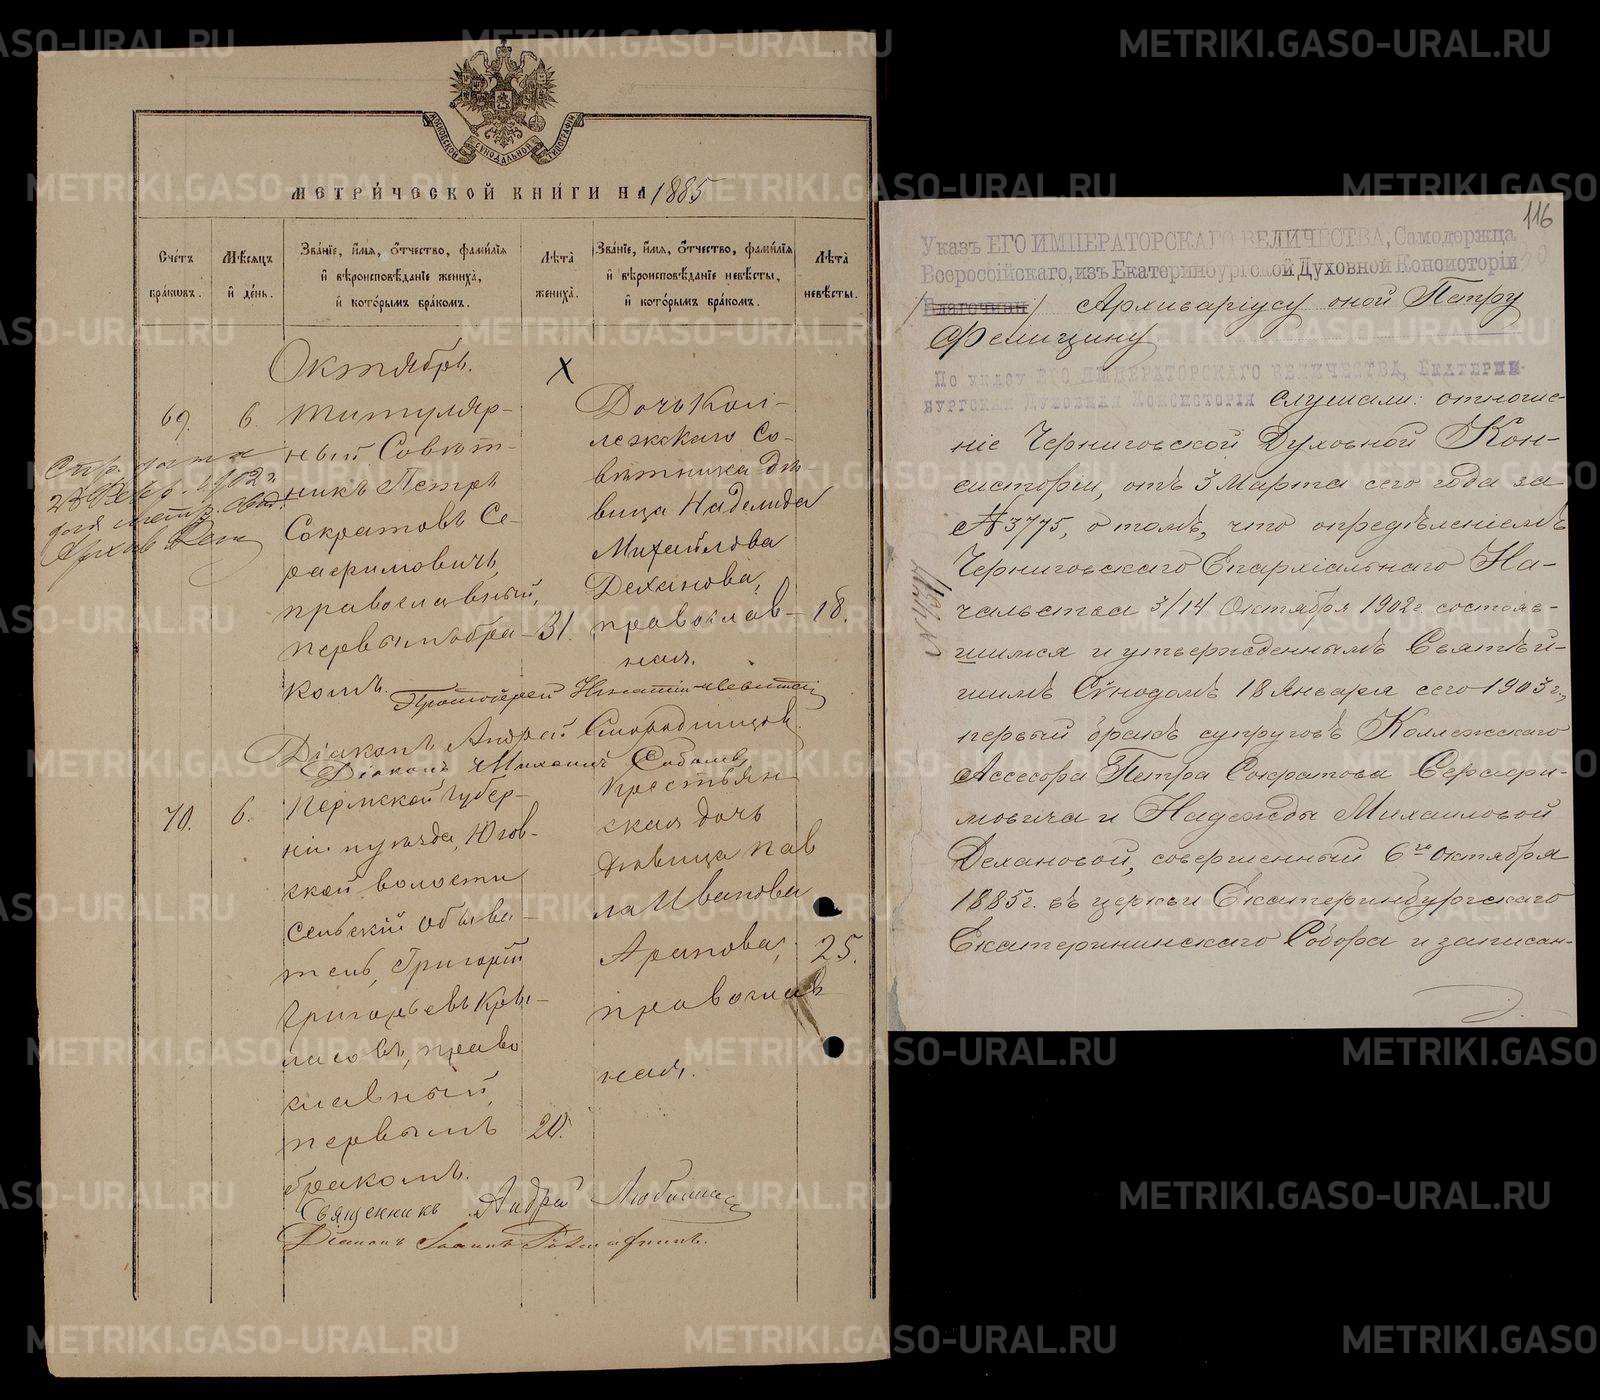 МОСКОВСКОЙ СѴНОДАЛЬНОЙ ТИПОГРАФІИ
МЕТРИ́ЧЕСКОЙ КНИ́ГИ НА 1885
Сче́тъ бра́ковъ.
Мѣ́сяцъ и҆ де́нь.
Зва́нїе, и҆́мя, ѻ҆́тчество, фами́лїя и҆ вѣроисповѣ́данїе жениха̀, и҆ кото́рымъ бра́комъ.
Лѣ́та жениха̀.
Зва́нїе, и҆́мя, ѻ҆́тчество, фами́лїя и҆ вѣроисповѣ́данїе невѣ́сты, и҆ кото́рымъ бра́комъ.
Лѣ́та невѣ́сты.
Октябрь.
X
69. 6.
Титуляр-
ный Совѣт-
никъ Петръ
Сократовъ Се-
рафимовичъ,
православный,
первымъ бра-
комъ.
31.
Дочь Кол-
лежскаго Со-
вѣтника дѣ-
вица Надежда
Михайлова
Деханова,
православ-
ная.
18.
23 Февр. 1902 г.
Протоіерей
Діаконъ Андрей Смородинцовъ.
Діаконъ Михаилъ Соболевъ
70. 6.
Пермской губер-
ніи и уѣзда, Югов-
ской волости
сельскій обыва-
тель, Григорій
Григорьевъ Кры-
ласовъ, право
славный,
первымъ
бракомъ.
20.
Крестьян-
ская дочь
дѣвица Пав
ла Иванова
Арапова,
православ
ная.
25.
Священникъ Андрей
Діаконъ Іоаннъ
116
Указъ ЕГО ИМПЕРАТОРСКАГО ВЕЛИЧЕСТВА, Самодержца
Всероссійскаго, изъ Екатеринбургской Духовной Консисторіи
Благочин Архиваріусу оной Петру
Фелицину
По указу ЕГО ИМПЕРАТОРСКАГО ВЕЛИЧЕСТВА, Екатерин-
бургская Духовная Консисторія слушали: отноше-
ніе Черниговской Духовной Кон-
систоріи, отъ 3 Марта сего года за
№ 3775, о томъ, что опредѣленіемъ
Черниговскаго Епархіальнаго На-
чальства 3/14 Октября 1902 г. состояв-
шимся и утвержденнымъ Святѣй-
шимъ Сѵнодомъ 18 Января сего 1903 г.,
первый бракъ супруговъ Коллежскаго
Ассесора Петра Сократова Серафи-
мовича и Надежды Михаиловой
Дехановой, совершенный 6го Октября
1885 г. въ церкви Екатеринбургскаго
Екатерининскаго Собора и записан-
METRIKI.GASO-URAL.RU